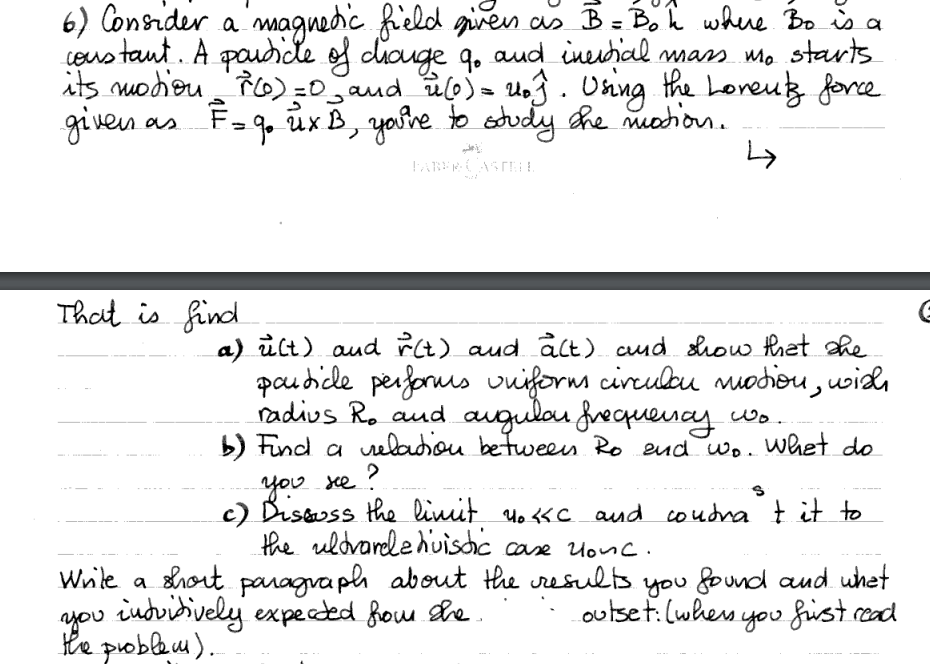 6) Consider a magnetic field given as B⃗ = B₀ k̂ where B₀ is a
constant. A particle of charge q₀ and inertial mass m₀ starts
its motion r⃗(0) = 0⃗, and u⃗(0) = u₀ ĵ. Using the Lorentz force
given as F⃗ = q₀ u⃗ x B⃗, you're to study the motion.
FABER-CASTELL
↳
That is find
a) u⃗(t) and r⃗(t) and a⃗(t) and show that the
particle performs uniform circular motion, with
radius R₀ and angular frequency ω₀.
b) Find a relation between R₀ and ω₀. What do
you see?
c) Discuss the limit u₀ << c and contrast it to
the ultrarelativistic case u₀~c.
Write a short paragraph about the results you found and what
you intuitively expected from the outset. (when you first read
the problem).